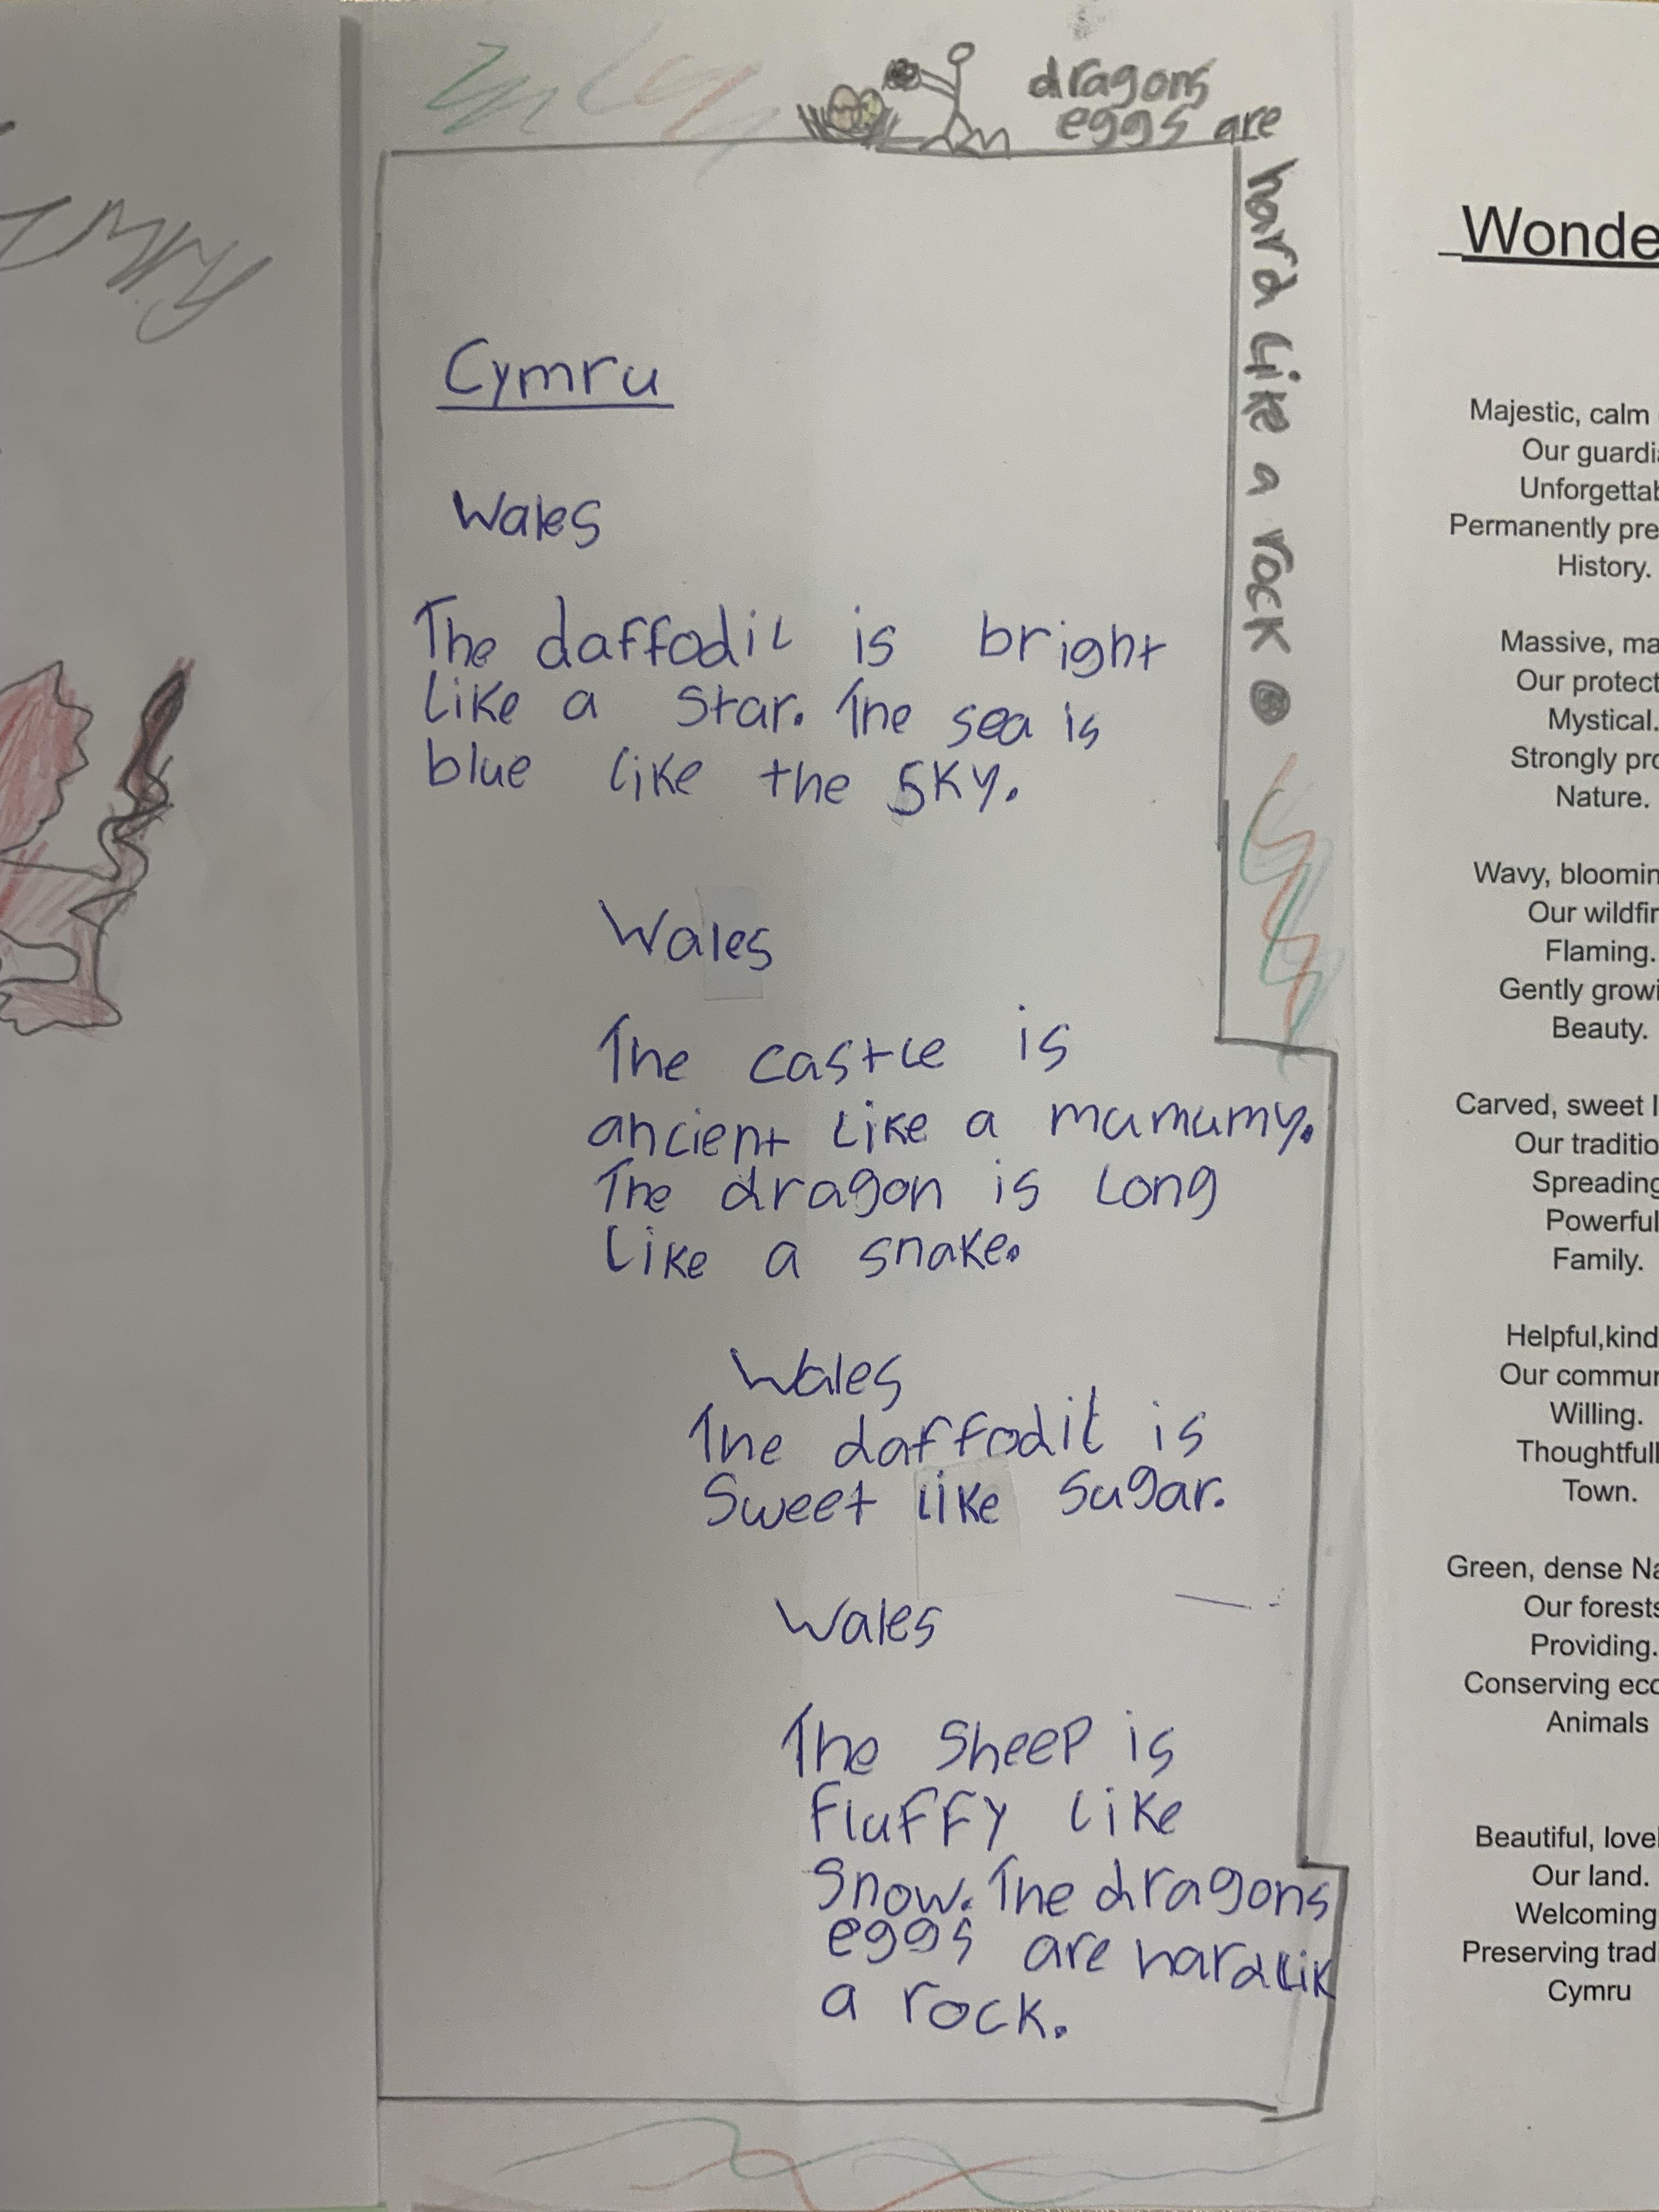 dragons
eggs are
hard like a rock
Cymru
Wales
The daffodil is bright
like a star. The sea is
blue like the sky.
Wales
The castle is
ancient like a mumumy.
The dragon is long
like a snake.
Wales
The daffodil is
Sweet like sugar.
Wales
The sheep is
fluffy like
snow. The dragons
eggs are hard lik
a rock.
Wonde
Majestic, calm
Our guardi
Unforgettab
Permanently pre
History.
Massive, ma
Our protect
Mystical.
Strongly pro
Nature.
Wavy, bloomin
Our wildfir
Flaming.
Gently growi
Beauty.
Carved, sweet l
Our traditio
Spreading
Powerful
Family.
Helpful,kind
Our commun
Willing.
Thoughtfull
Town.
Green, dense Na
Our forests
Providing.
Conserving eco
Animals
Beautiful, lovel
Our land.
Welcoming
Preserving trad
Cymru